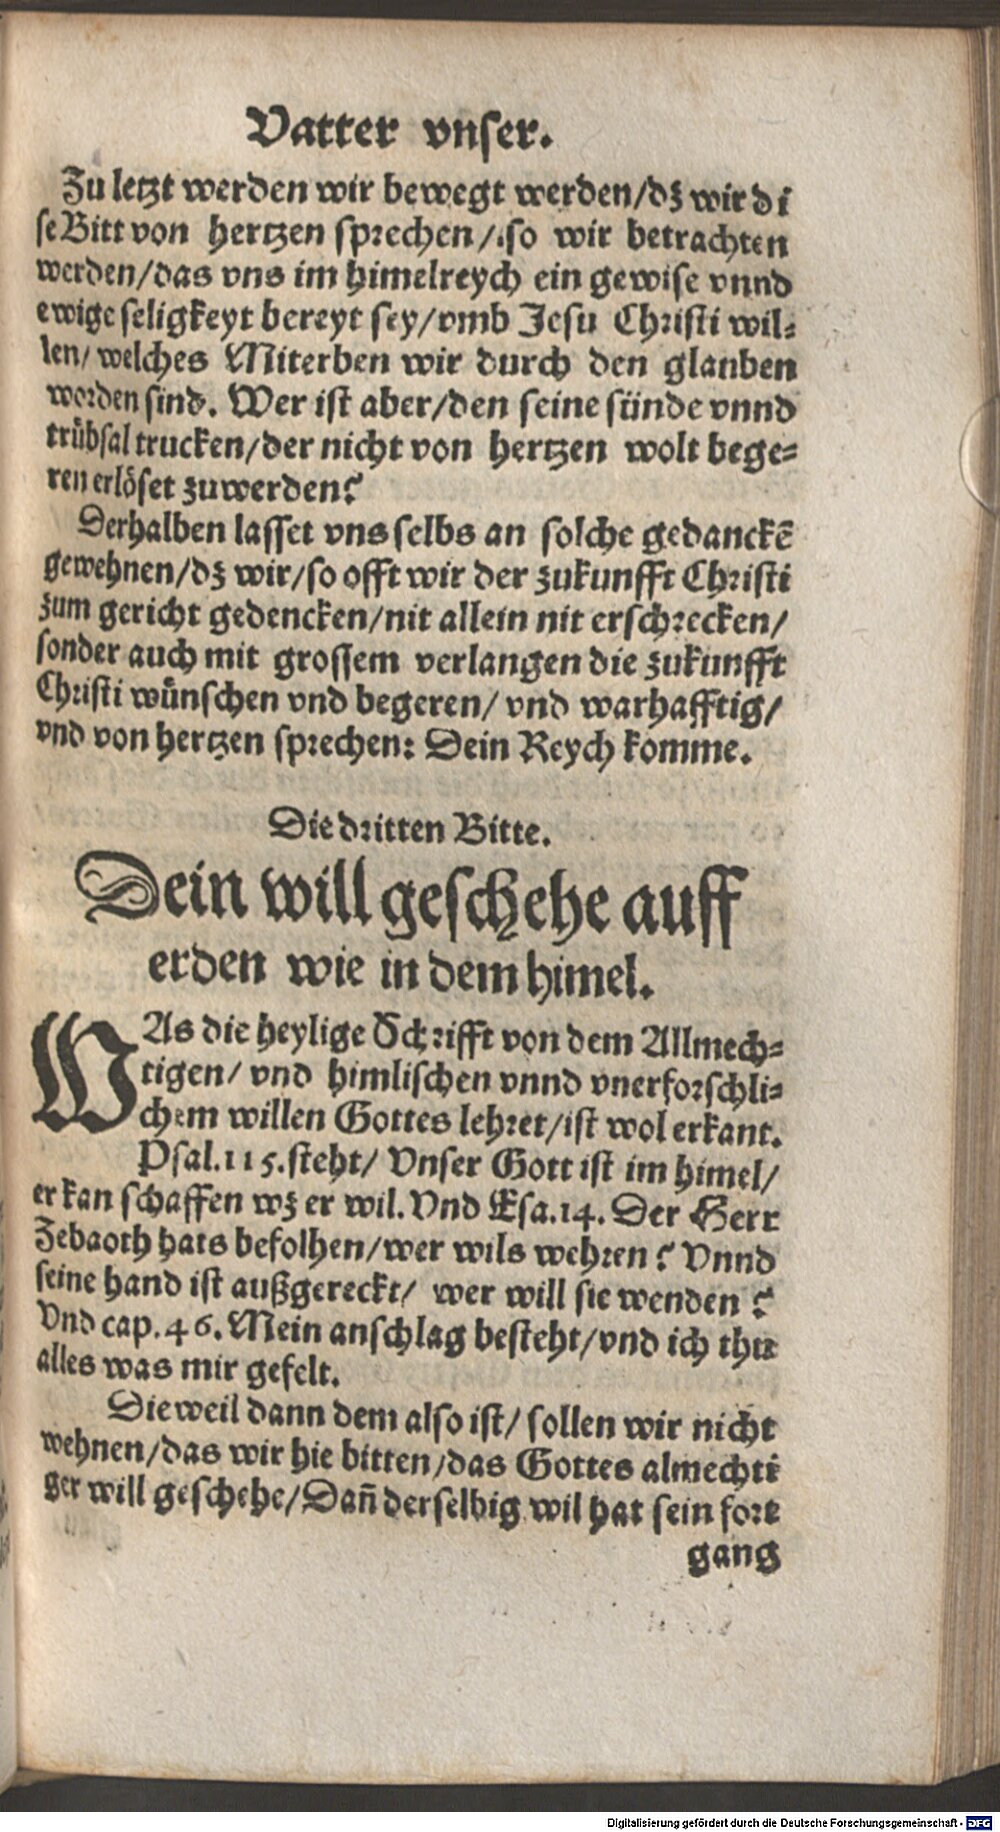 Vatter vnser.
Zu letzt werden wir bewegt werden/dz wir di
se Bitt von hertzen sprechen/so wir betrachten
werden/das vns im himelreych ein gewise vnnd
ewige seligkeyt bereyt sey/vmb Jesu Christi wil⸗
len/welches Miterben wir durch den glauben
worden sind. Wer ist aber/den seine sünde vnnd
trübsal trucken/der nicht von hertzen wolt bege⸗
ren erlöset zuwerden?
Derhalben lasset vns selbs an solche gedanckē
gewehnen/dz wir/so offt wir der zukunfft Christi
zum gericht gedencken/nit allein nit erschrecken/
sonder auch mit grossem verlangen die zukunfft
Christi wünschen vnd begeren/ vnd warhafftig/
vnd von hertzen sprechen: Dein Reych komme.
Die dritten Bitte.
Dein will geschehe auff
erden wie in dem himel.
WAs die heylige Schrifft von dem Allmech⸗
tigen/ vnd himlischen vnnd vnerforschli⸗
chem willen Gottes lehret/ist wol erkant.
Psal.115.steht/ Vnser Gott ist im himel/
er kan schaffen wz er wil. Vnd Esa.14. Der Herr
Zebaoth hats befolhen/wer wils wehren? Vnnd
seine hand ist außgereckt/ wer will sie wenden?
Vnd cap.46. Mein anschlag besteht/vnd ich thu
alles was mir gefelt.
Die weil dann dem also ist/ sollen wir nicht
wehnen/das wir hie bitten/das Gottes almechti
ger will geschehe/Dañ derselbig wil hat sein fort
gang
Digitalisierung gefördert durch die Deutsche Forschungsgemeinschaft - DFG